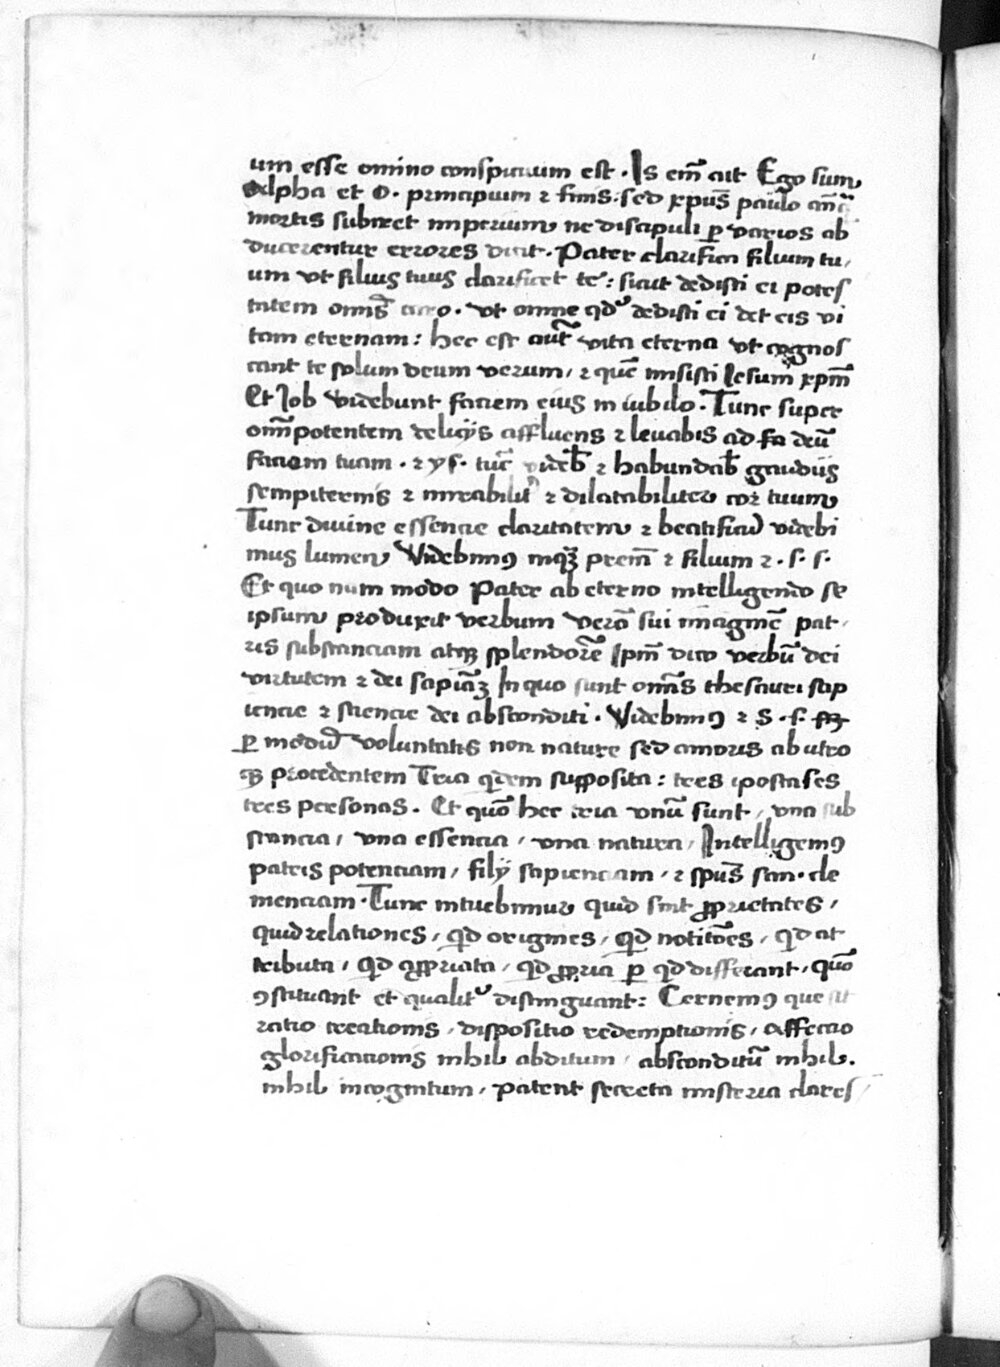 um esse omino conspicuum est . Is em̄ ait Ego sum
Alpha et O . principium ⁊ finis : sed xpūs paulo an̄
mortis subiret imperium ne discipuli ꝑ varios ab
ducerentur errores dicit . Pater clarifica filium tu,
um vt filius tuus clarificet te : sicut dedisti ei potes
tatem omīs . vt omne qd dedisti ei det eis vi
tam eternam : hec est aut̄ vita eterna vt cognos
cant te solum deum verum , ⁊ quē misisti Iesum xpm̄
Et Iob videbunt faciem eius in iubilo . Tunc super
om̄potentem deliciis affluens ⁊ levabis ad deū
faciem tuam . ⁊ ys . tūc videb̄ ⁊ habundab̄ gaudiis
sempiternis ⁊ mirabilit̄ ⁊ dilatabiliter cor tuum
Tunc divine essencie claritatem ⁊ beatificū videbi
mus lumen Videbimꝯ inqꝫ prem̄ ⁊ filium ⁊ . s . s .
Et quo nam modo Pater ab eterno intelligendo se
ipsum produxit verbum verō sui imaginē pat,
ris substanciam atqꝫ splendorē Ipm̄ dico verbū dei
virtutem ⁊ dei sapiāꝫ In quo sunt omīs thesauri sap
iencie ⁊ sciencie dei absconditi . Videbimꝯ ⁊ S . s .
ꝑ modū voluntatis non nature sed amoris ab utro
qꝫ procedentem Tria qdem supposita : tres ipostases
tres personas . Et quō hec tria vnū sunt , vna sub
stancia , vna essencia , vna natura , Intelligemꝯ
patris potenciam , filij sapienciam , ⁊ spūs san . cle
menciam . Tunc intuebimur quid sint ꝓprietates ,
quid relationes , qd origines , qd notiōes , qd at
tributa , qd apꝓpriata , qd ꝓpria ꝑ qd differant , quō
ꝯstituant et qualit̄ distinguant : Cernemꝯ que sit
ratio creationis , dispositio redemptionis , affectio
glorificationis nihil abditum , absconditū nihil .
nihil incognitum , patent secreta misteria clares